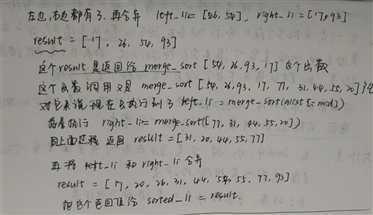 左边右边都有了,再合并 left_li = [26, 54], right_li = [17, 93]
result = [17, 26, 54, 93]
这个result 是返回给 merge_sort [54, 26, 93, 17] 这个函数
这个函数调用又是 merge_sort [54, 26, 93, 17, 77, 31, 44, 55, 20]
对它来说现在只执行到了 left_li = merge_sort(alist[:mid])
需要执行 right_li = merge_sort([77, 31, 44, 55, 20])
同上面过程 返回 result = [31, 20, 44, 55, 77]
再将 left_li 和 right_li 合并
result = [17, 20, 26, 31, 44, 54, 55, 77, 93]
把这个返回值给 sorted_li = result